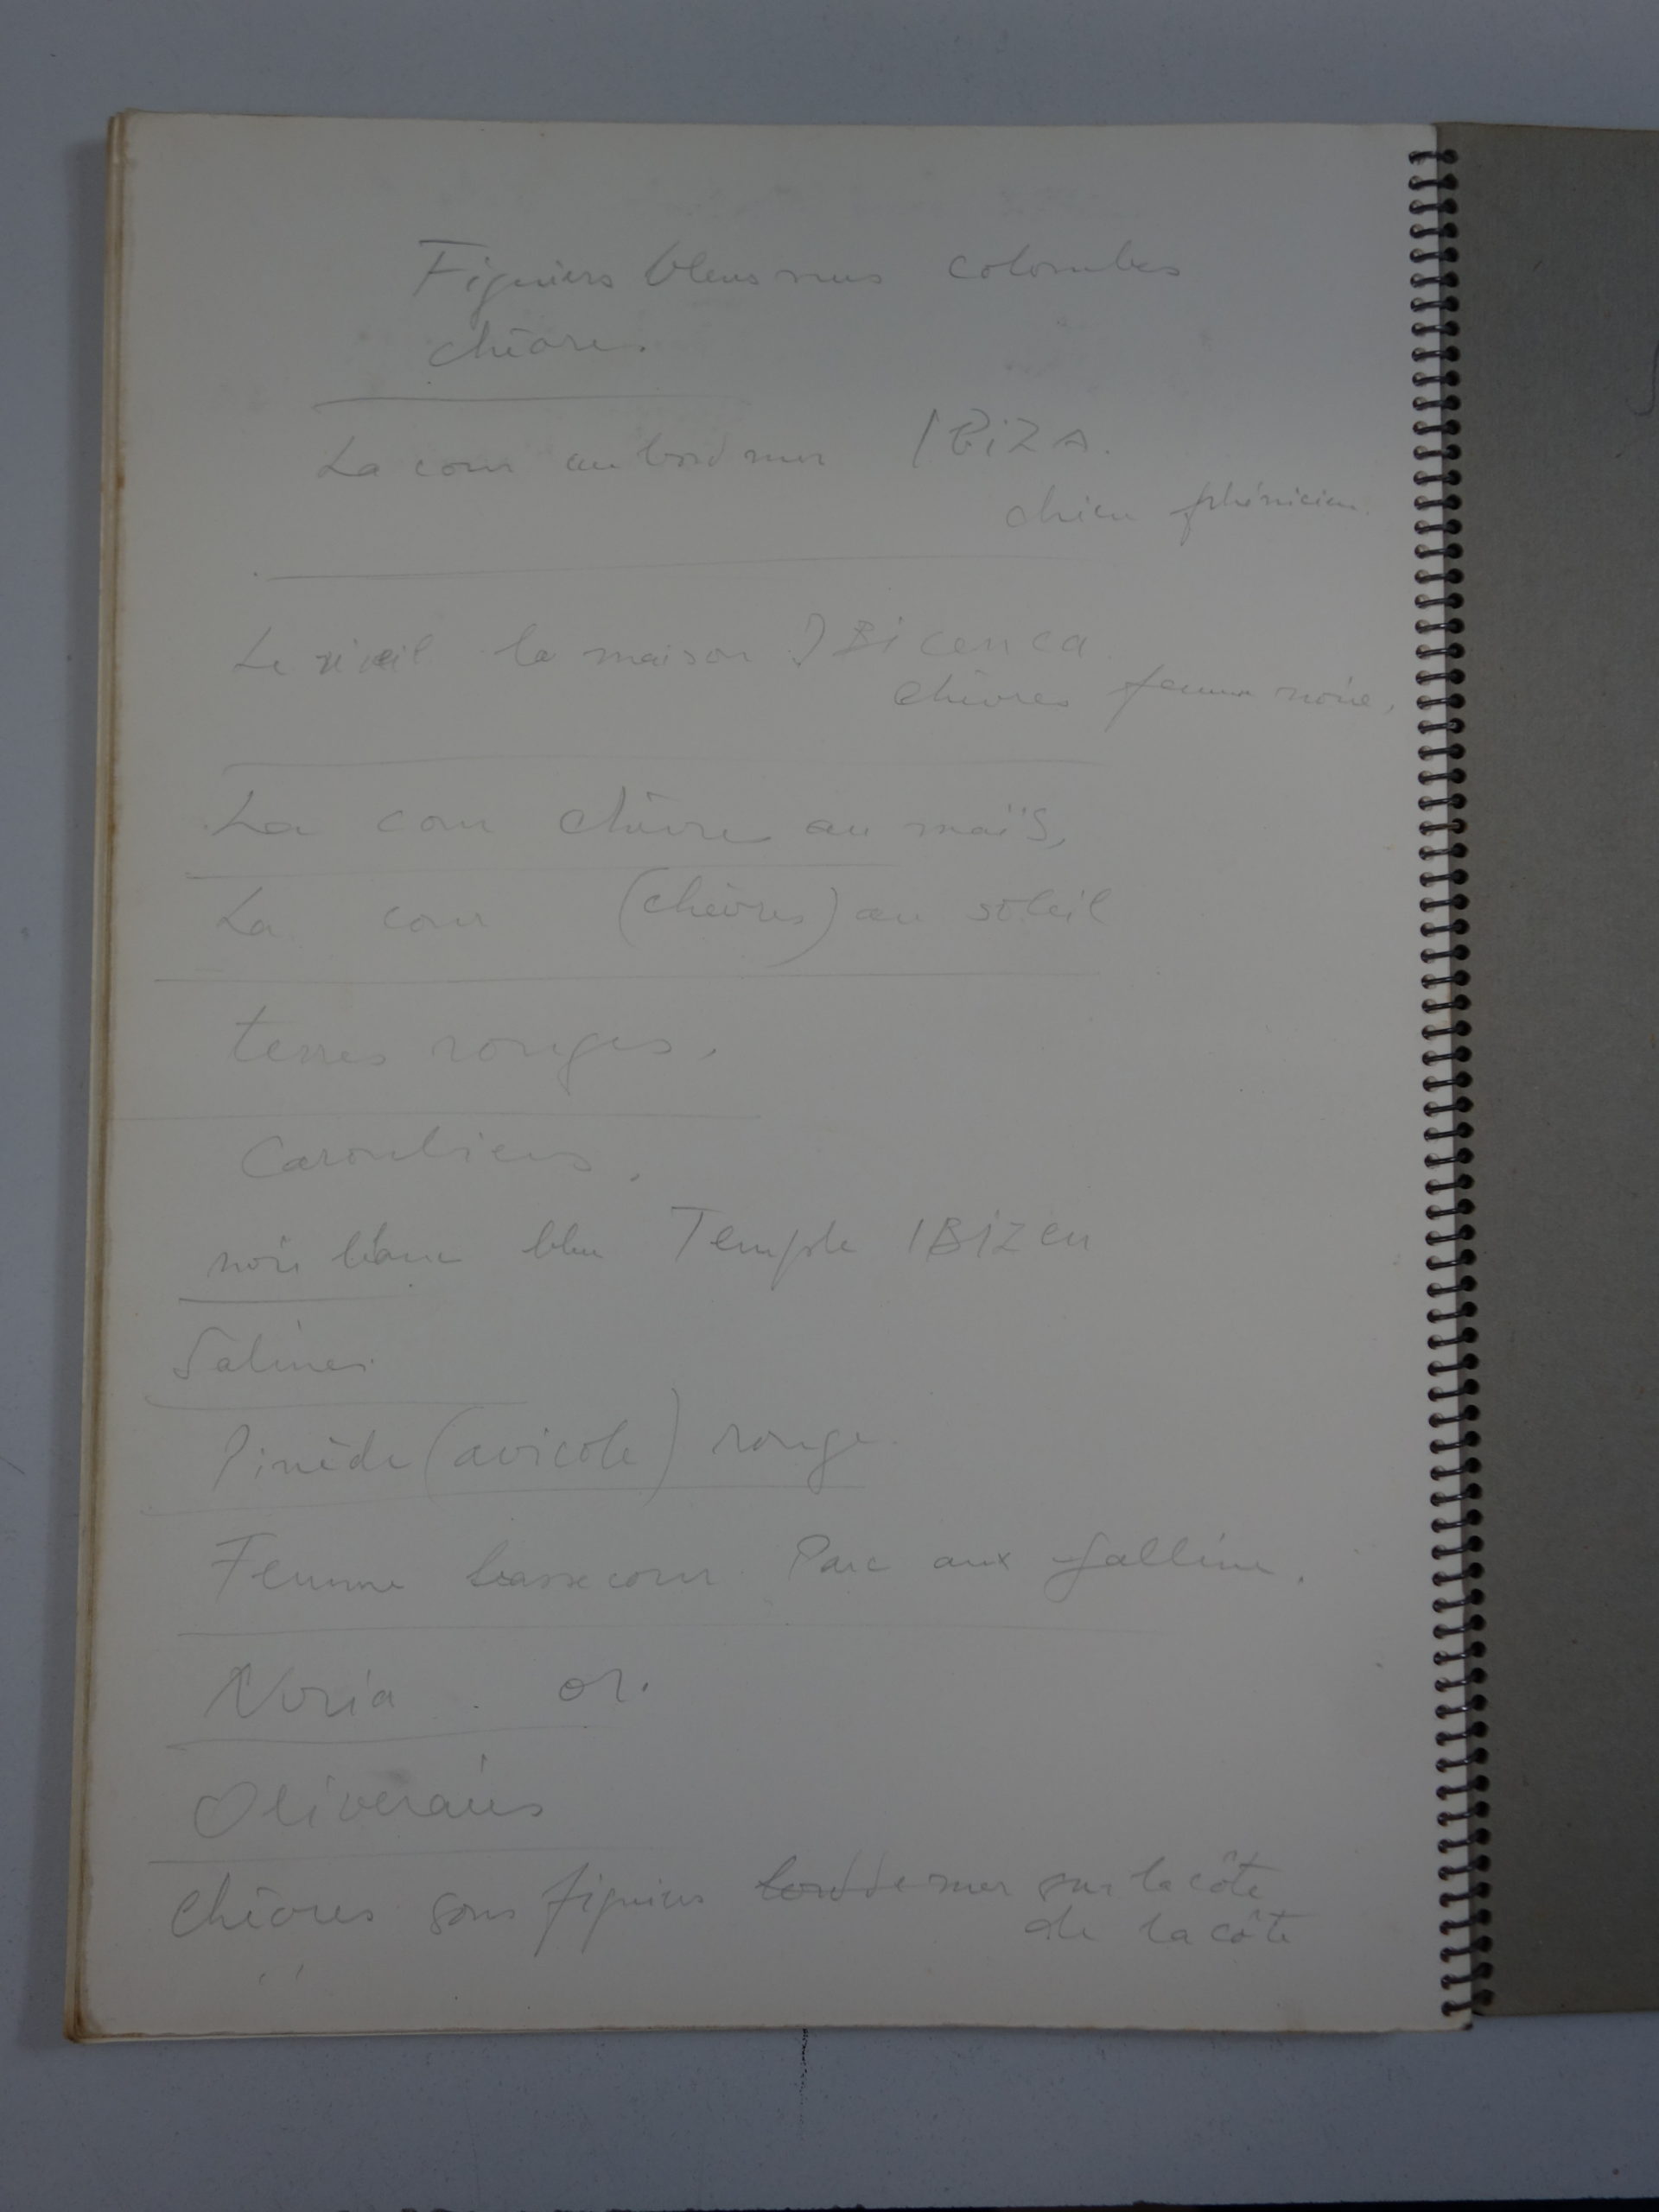 Figuiers bleus nus colombes
chèvres.
La cour au bord mer IBIZA.
chien phénicien.
Le réveil la maison IBicenca
chèvres femme noire,
La cour chèvre au maïs,
La cour (chèvres) au soleil
terres rouges.
Caroubiers.
noir blanc bleu Temple IBIZen
Salines.
Pinède (avicole) rouge.
Femme basse cour Parc aux galline.
Noria . or.
Oliveraies
Chèvres sous figuiers bord de mer sur la côte
de la côte